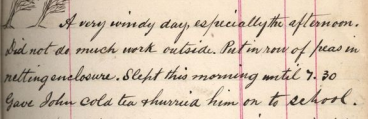 A very windy day, especially the afternoon.
Did not do much work outside. Put in row of peas in
netting enclosure. Slept this morning until 7.30
Gave John cold tea & hurried him on to school.